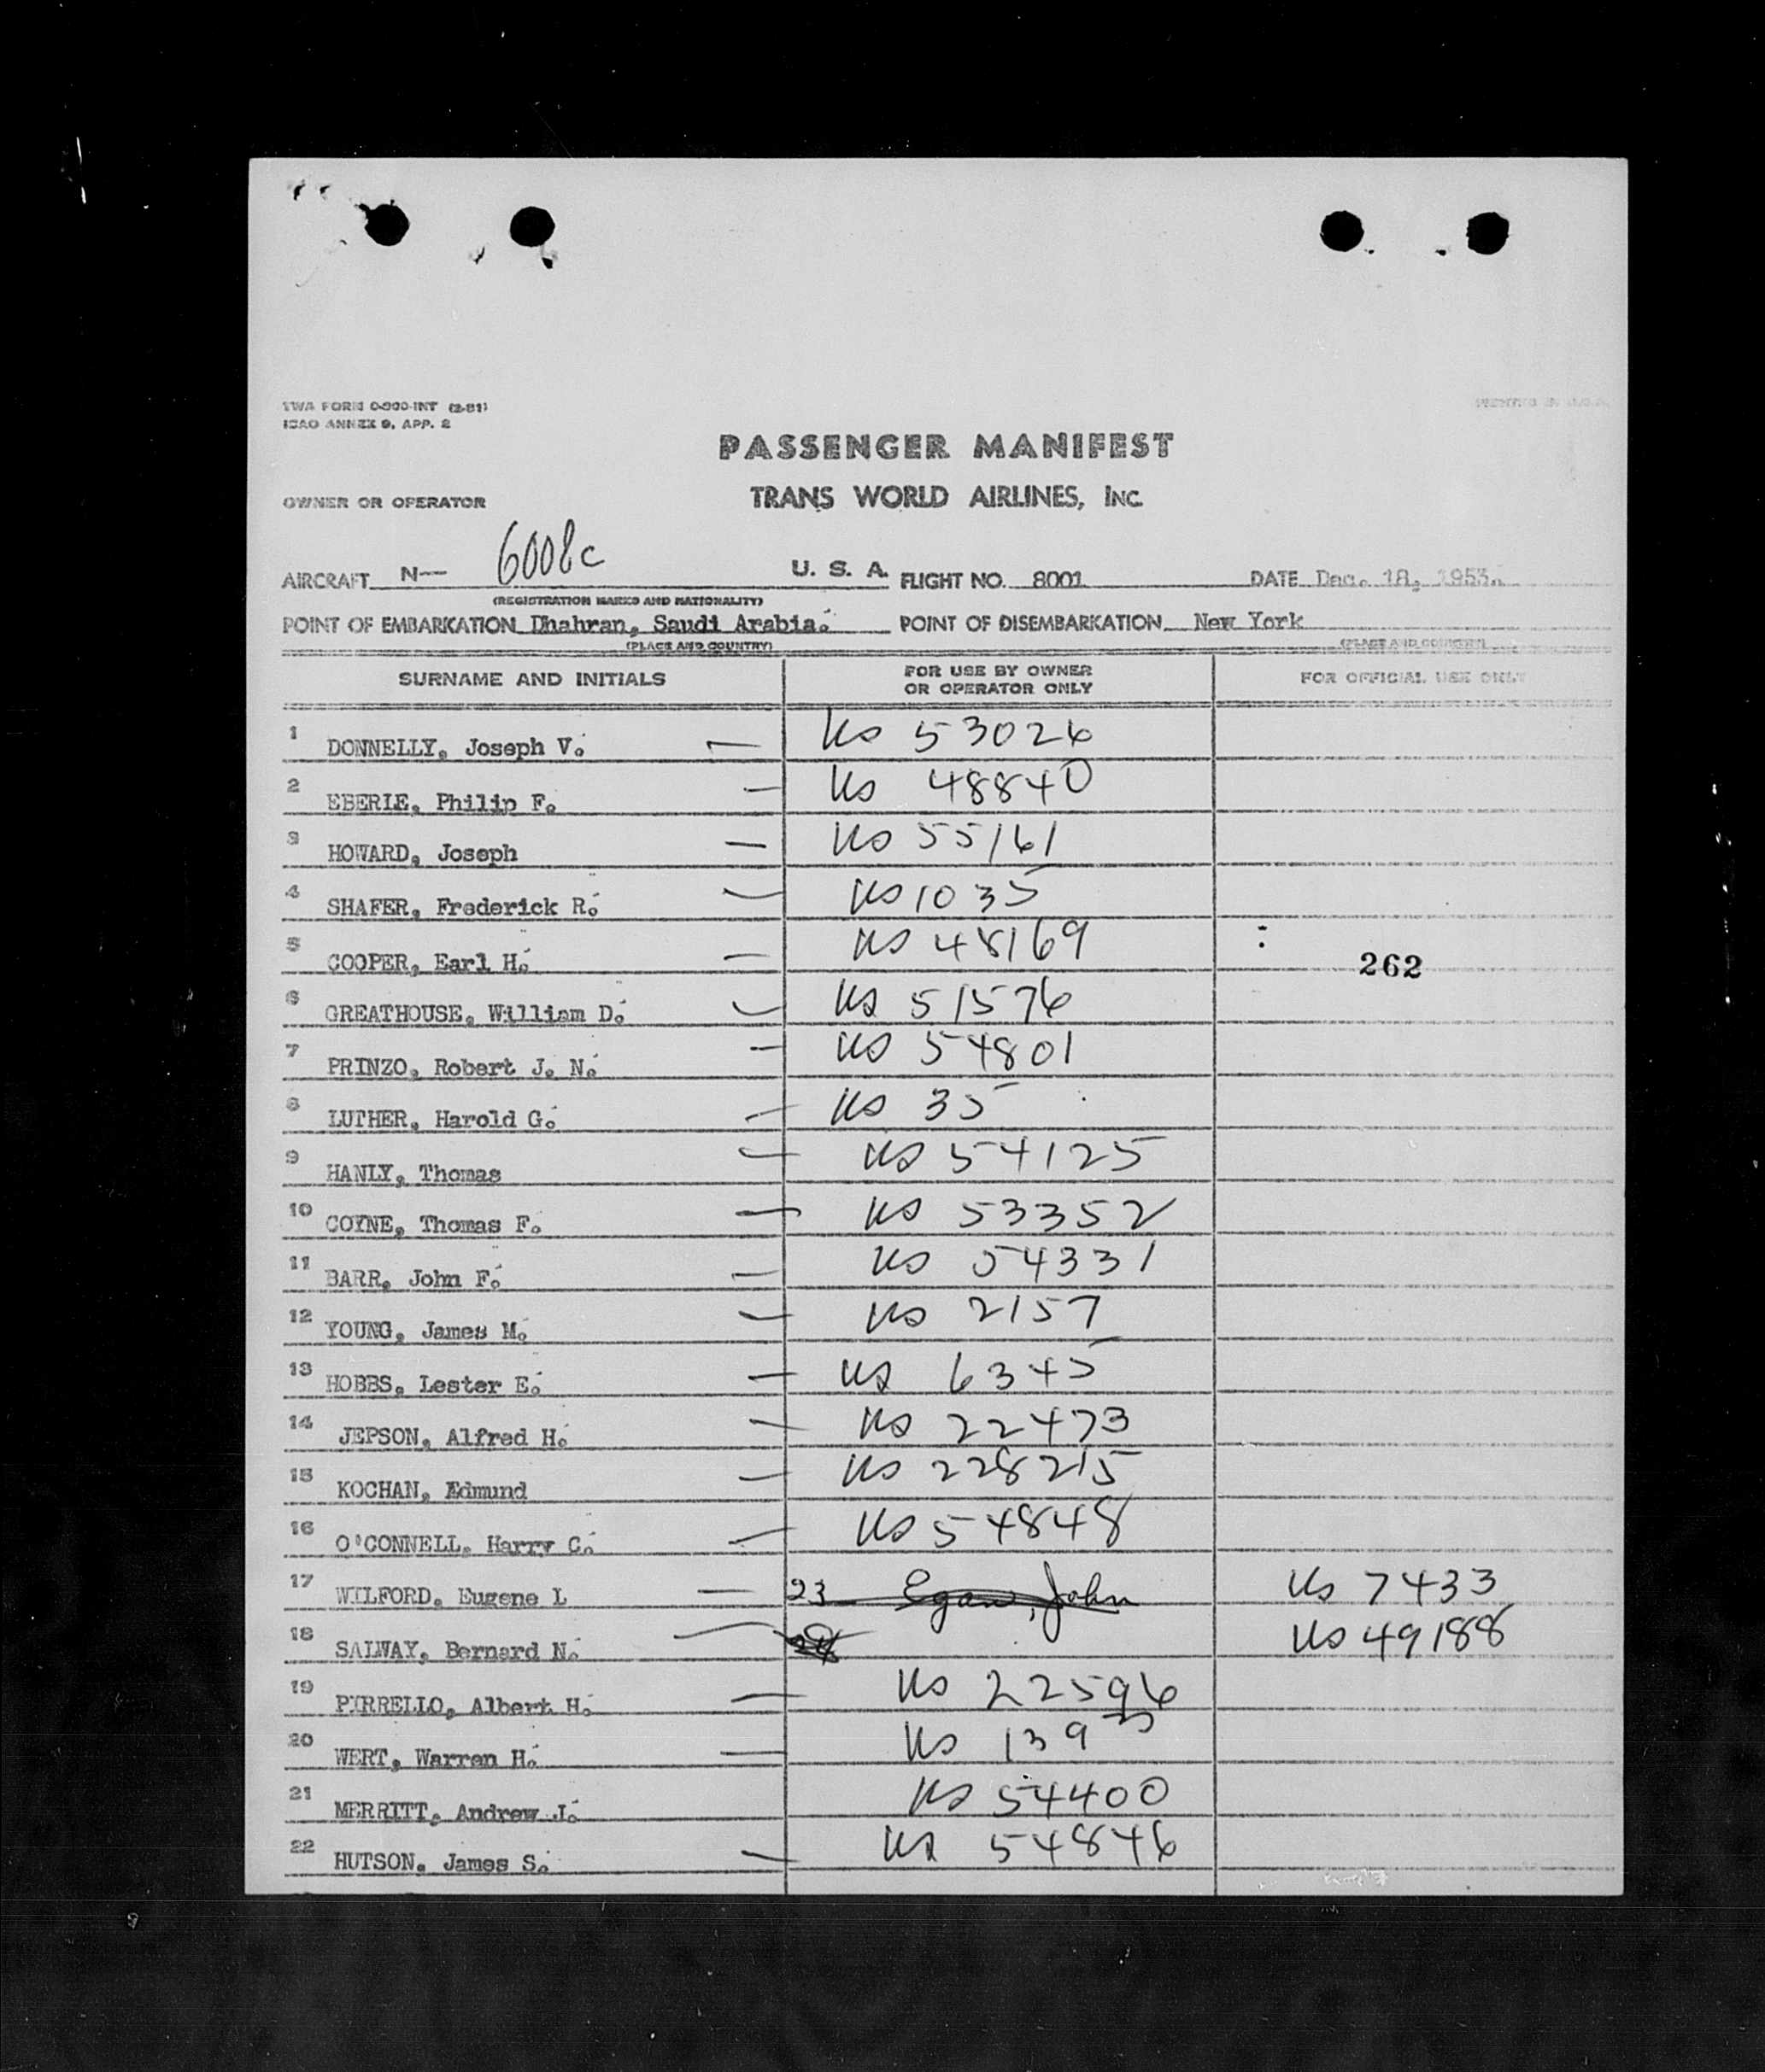 TWA FORM O-300-INT (2-51)
ICAO ANNEX 9, APP. 2
PRINTED IN U.S.A.
PASSENGER MANIFEST
OWNER OR OPERATOR TRANS WORLD AIRLINES, INC.
AIRCRAFT N— 6008C U. S. A. FLIGHT NO. 8001 DATE Dec. 18, 1953.
(REGISTRATION MARKS AND NATIONALITY)
POINT OF EMBARKATION Dhahran, Saudi Arabia. POINT OF DISEMBARKATION New York
(PLACE AND COUNTRY) (PLACE AND COUNTRY)
SURNAME AND INITIALS FOR USE BY OWNER OR OPERATOR ONLY FOR OFFICIAL USE ONLY
1 DONNELLY, Joseph V. — US 53026
2 EBERLE, Philip F. — US 48840
3 HOWARD, Joseph — US 55161
4 SHAFER, Frederick R. — US 1035
5 COOPER, Earl H. — US 48169 262
6 GREATHOUSE, William D. — US 51576
7 PRINZO, Robert J. N. — US 54801
8 LUTHER, Harold G. — US 35
9 HANLY, Thomas — US 54125
10 COYNE, Thomas F. — US 53352
11 BARR, John F. — US 54331
12 YOUNG, James M. — US 2157
13 HOBBS, Lester E. — US 6345
14 JEPSON, Alfred H. — US 22473
15 KOCHAN, Edmund — US 228215
16 O'CONNELL, Harry C. — US 54848
17 WILFORD, Eugene L — 23 Egan, John US 7433
18 SALWAY, Bernard N. — 24 US 49188
19 PIRRELLO, Albert H. — US 22596
20 WERT, Warren H. — US 1395
21 MERRITT, Andrew J. US 54400
22 HUTSON, James S. — US 54846